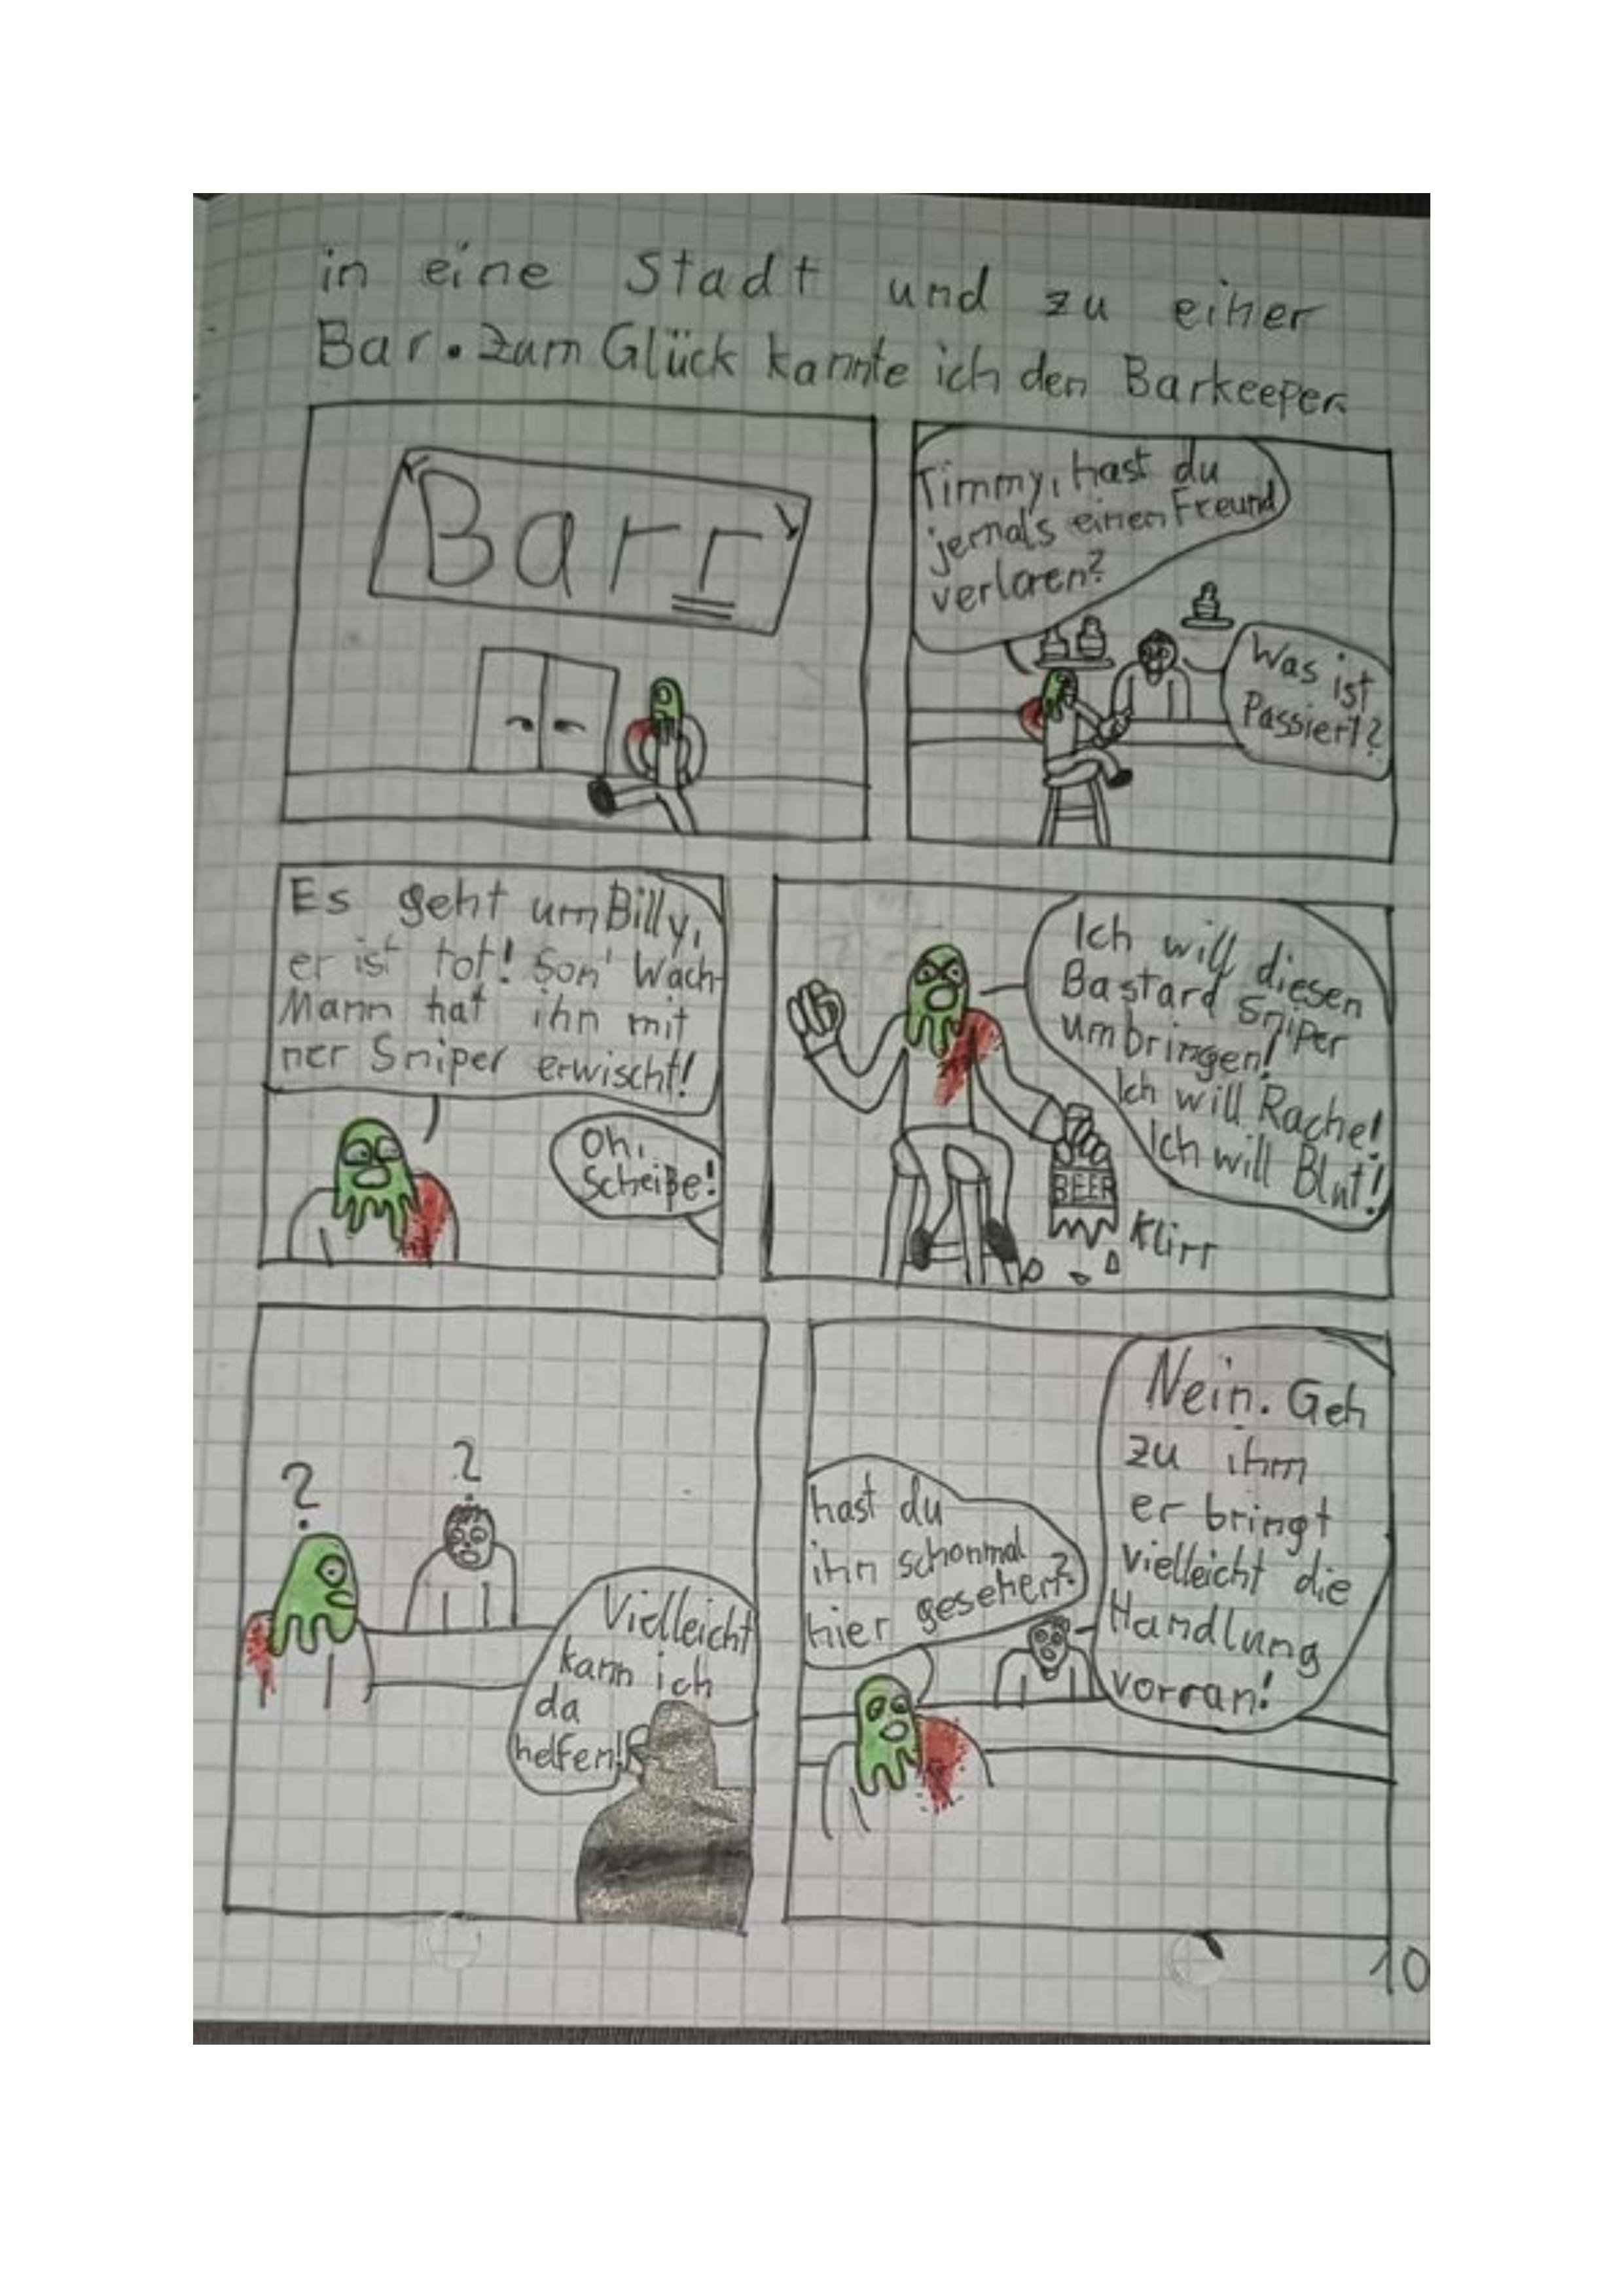 in eine Stadt und zu einer
Bar. Zum Glück kannte ich den Barkeeper.
Barr
Timmy, hast du
jemals einen Freund
verloren?
Was ist
Passiert?
Es geht um Billy,
er ist tot! Son' Wach-
Mann hat ihn mit
ner Sniper erwischt!
Oh,
Scheiße!
Ich will diesen
Bastard Sniper
umbringen!
Ich will Rache!
Ich will Blut!
BEER
Klirr
?
?
Vielleicht
kann ich
da
helfen!
hast du
ihn schonmal
hier gesehen?
Nein. Geh
zu ihm
er bringt
vielleicht die
Handlung
vorran!
10